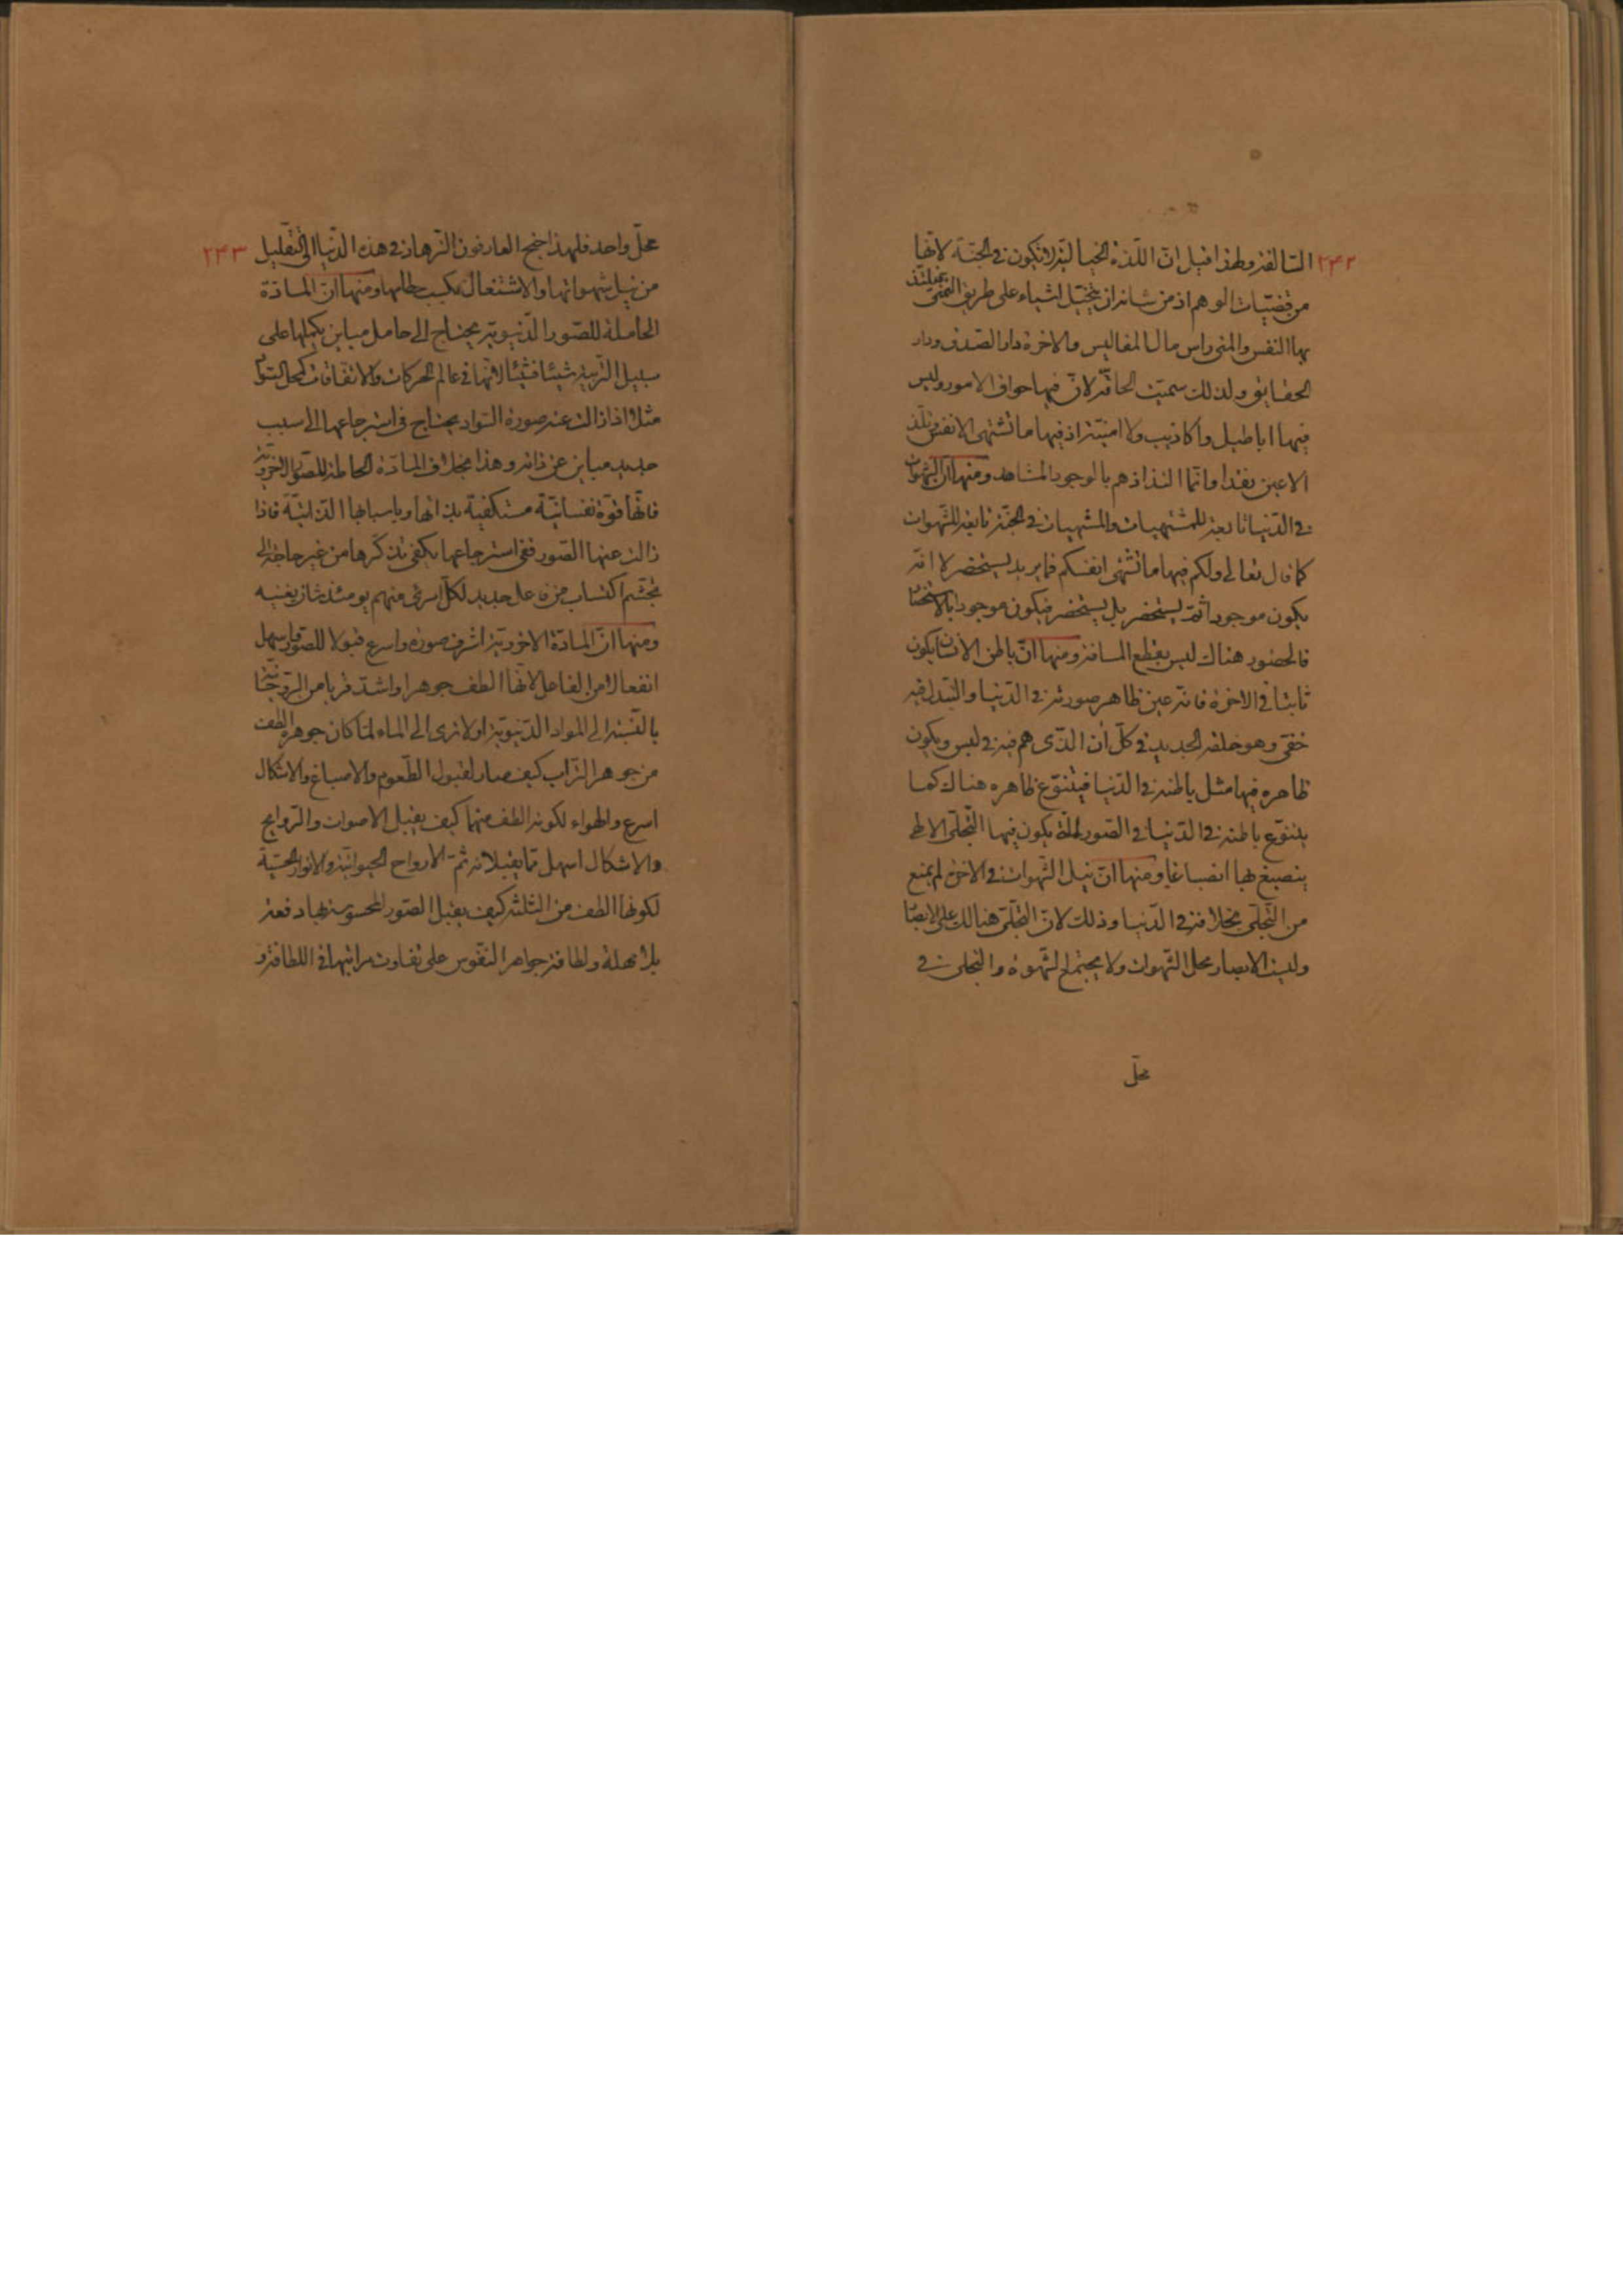 ٢۴٢
السالفة ولهذا قيل ان اللذة الخيالية لا تكون في الجنة لانها
من قضيّات الوهم اذ من شانه ان يتخيّل اشياء على طريق التمنى فيلتذ
بها النفس والمنى راس مال المفاليس والاخرة دار الصدق ودار
الحقايق ولذلك سميت الحاقّة لانّ فيها حواق الامور وليس
فيها اباطيل واكاذيب ولا امنيّة اذ فيها ما تشتهى الانفس وتلذ
الاعين نقدا وانّما التذاذهم بالوجود المشاهد ومنها انّ الشهوات
في الدّنيا تابعة للمشتهيات والمشتهيات في الجنّة تابعة للشّهوات
كما قال تعالى ولكم فيها ما تشتهى انفسكم فما يريد يستحضر لا انّه
يكون موجودا ثمّ يستحضر بل يستحضر فيكون موجودا بالاستحضار
فالحضور هناك ليس بقطع المسافة ومنها انّ باطن الانسان يكون
ثابتا في الاخرة فانّه عين ظاهر صورته في الدّنيا والتبدل فيه
خفيّ وهو خلقه الجديد في كلّ ان الذّى هم فيه في لبس ويكون
ظاهره فيها مثل باطنه في الدّنيا فيتنوّع ظاهره هناك كما
يتنوّع باطنه في الدّنيا في الصّور الّتى يكون فيها التّجلّى الالهى
ينصبغ بها انصباغا ومنها انّ نيل الشّهوات في الاخرة لم يمنع
من التّجلّى بخلافه في الدّنيا وذلك لانّ التّجلّى هنالك على الابصار
وليست الابصار محل الشّهوات ولا يجتمع الشّهوة والتّجلى في
محلّ
٢۴٣
محلّ واحد فلهذا جنح العارفون والزّهاد في هذه الدّنيا الى التّقليل
من نيل شهواتها والاشتغال بكسب حطامها ومنها انّ المادّة
الحاملة للصّور الدّنيويّة يحتاج الى حامل مباين يكملها على
سبيل التّربية شيئا فشيئا لانّها في عالم الحركات والاتّفاقات كمحل السّواد
مثلا اذا زالت عنه صورة السّواد يحتاج في استرجاعها الى سبب
جديد مباين عن ذاته وهذا بخلاف المادّة الحاملة للصّور الاخرويّة
فانّها قوّة نفسانيّة مستكفية بذاتها وباسبابها الذّاتيّة فاذا
زالت عنها الصّور ففى استرجاعها يكفى تذكّرها من غير حاجة الى
تجشّم اكتساب من فاعل جديد لكلّ امرئ منهم يومئذ شان يغنيه
ومنها انّ المادّة الاخرويّة اشرف صورة واسرع قبولا للصّور واسهل
انفعالا من الفاعل لانّها الطف جوهرا واشدّ قربا من الرّوحانيّة
بالنّسبة الى المواد الدّنيويّة اولا ترى الى الماء لمّا كان جوهره الطف
من جوهر التّراب كيف صار لقبول الطّعوم والاصباغ والاشكال
اسرع والهواء لكونه الطف منهما كيف يقبل الاصوات والرّوايح
والاشكال اسهل ممّا يقبلانه ثمّ الارواح الحيوانيّة والانوار الحسّيّة
لكونها الطف من الثلثة كيف يقبل الصّور المحسوسة بها دفعة
بلا مهلة ولطافة جواهر النّفوس على تفاوت مراتبها في اللطافة و